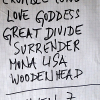 LONG
LOVE GODDESS
GREAT DIVIDE
SURRENDER
MONA LISA
WOODENHEAD